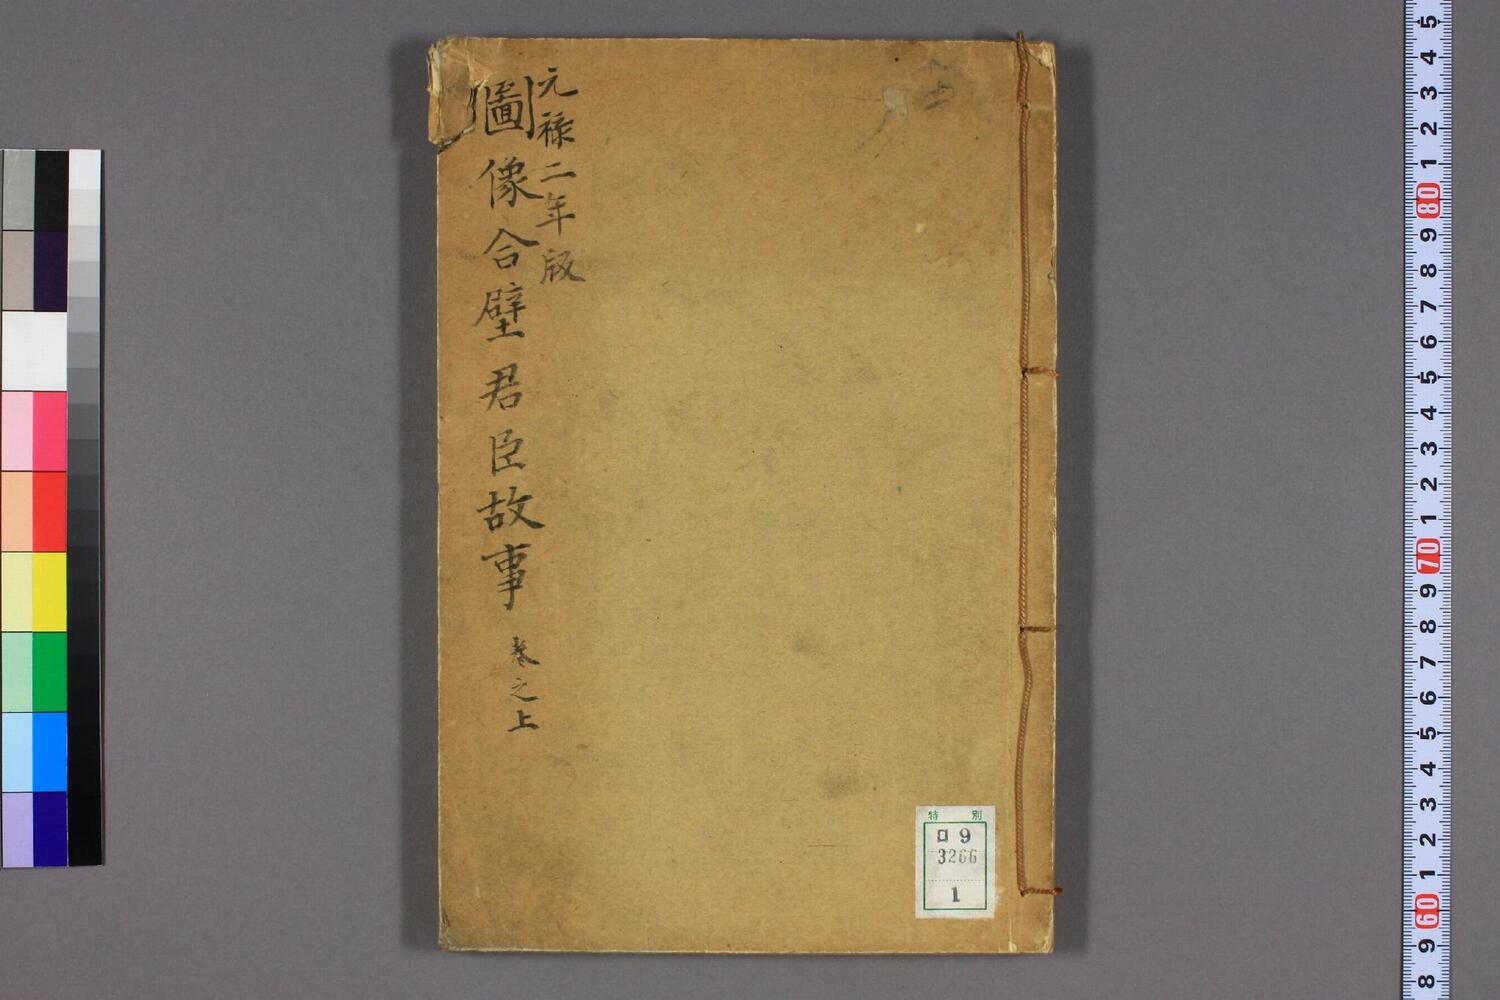 元禄二年版
圖像合璧君臣故事 巻之上
特別
ロ9
3266
1
5
4
3
2
1
80
9
8
7
6
5
4
3
2
1
70
9
8
7
6
5
4
3
2
1
60
9
8